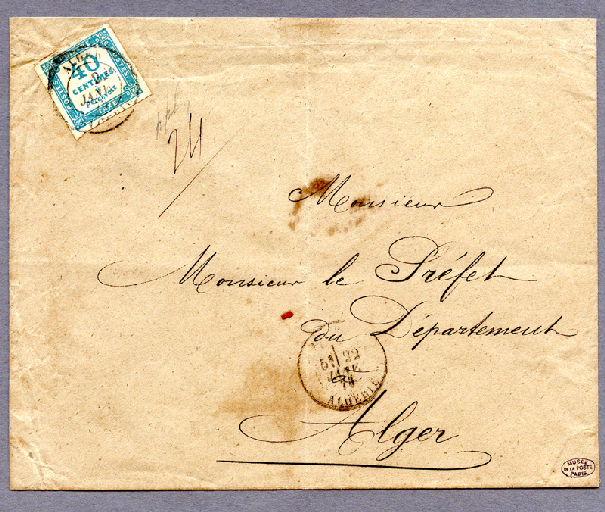 40
CENTIMES
24
Monsieur
Monsieur le Préfet
du Département
22
ALGERIE
Alger
MUSEE
DE LA POSTE
PARIS